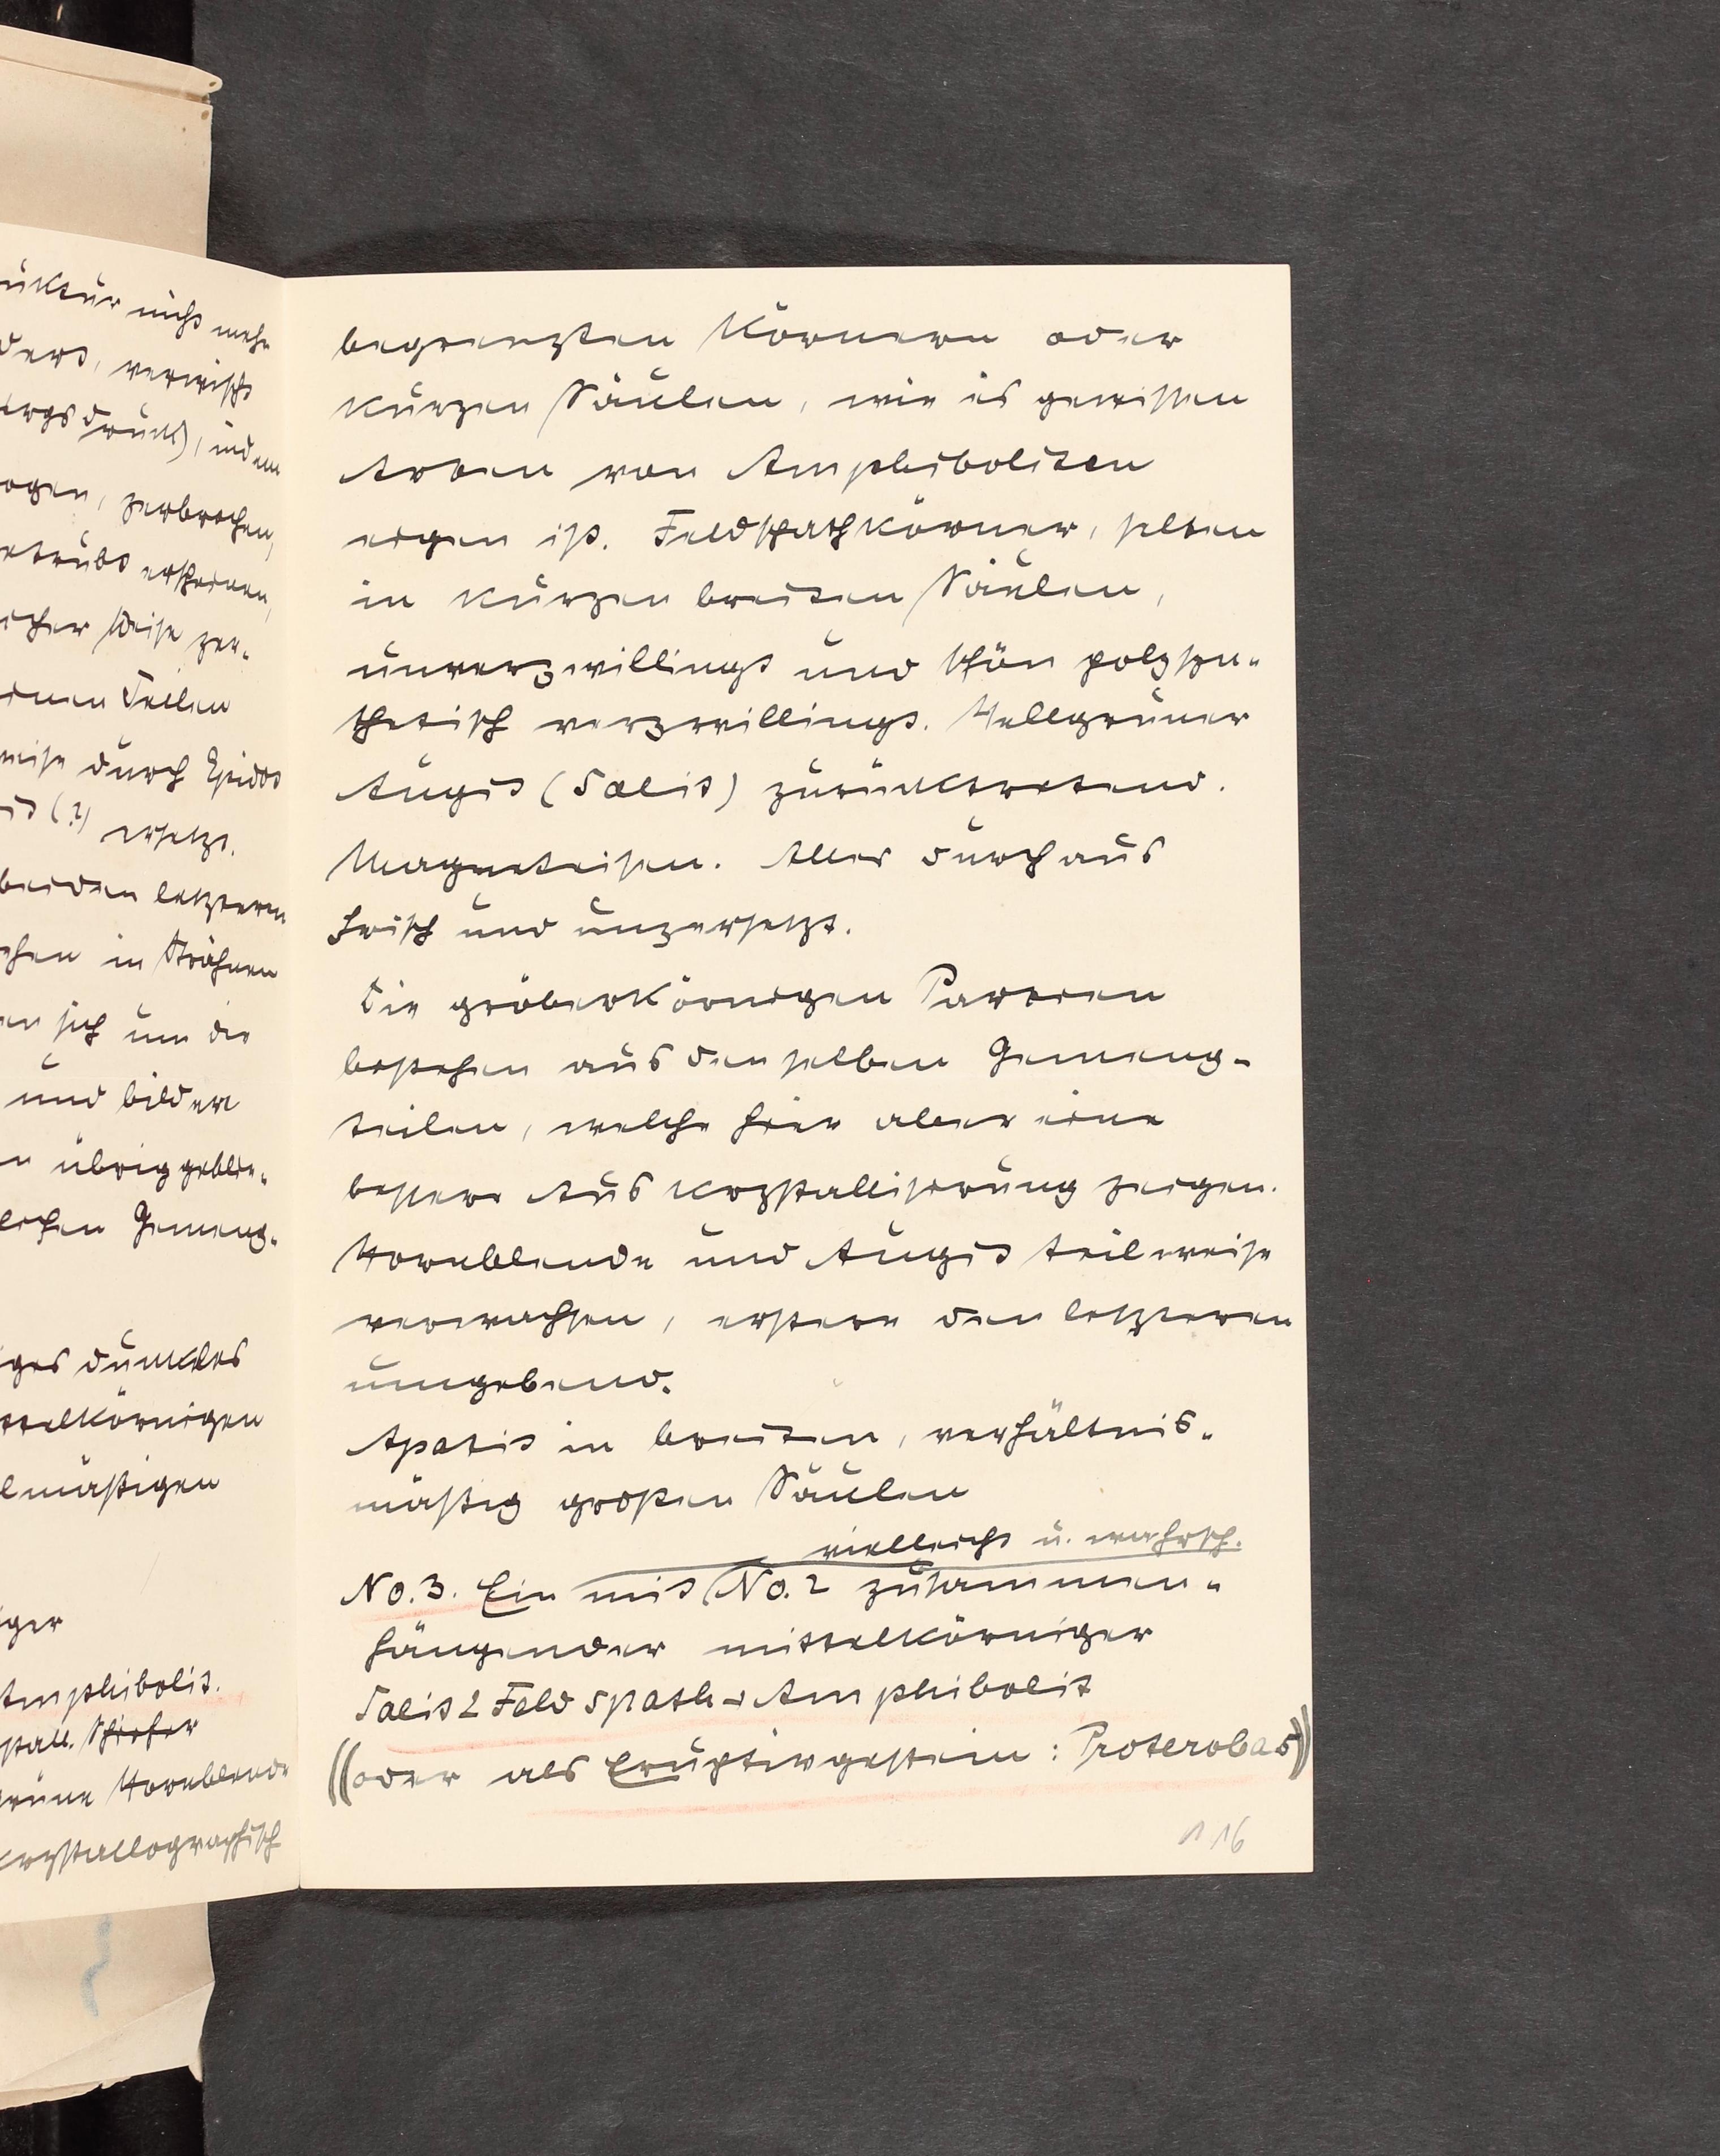 uktur nicht mehr
ders, verwischt
irgsdruck), indem
ogen, zerbrochen,
etrübt erscheinen,
icher Weise zer-
einen Teilen
weise durch Epidot
it (?) ersetzt.
beiden letzteren
chen in Strähnen
en sich um die
und bilden
n übrig geblie-
lichen Gemeng-
iges dunkles
ttelkörnigen
lmäßigen
iger
Amphibolit.
stall. Schiefer
grüne Hornblende
krystallographisch
begrenzten Körnern oder
kurzen Säulen, wie es gewissen
Arten von Amphiboliten
eigen ist. Feldspathkörner, selten
in kurzen breiten Säulen,
unverzwillingt und schön polysyn-
thetisch verzwillingt. Hellgrüner
Augit (Salit) zurücktretend.
Magneteisen. Alles durchaus
frisch und unzersetzt.
Die gröberkörnigen Partien
bestehen aus denselben Gemeng-
teilen, welche hier aber eine
bessere Auskrystallisierung zeigen.
Hornblende und Augit teilweise
verwachsen, erstere den letzteren
umgebend.
Apatit in breiten, verhältnis-
mäßig großen Säulen
vielleicht u. wahrsch.
No. 3. Ein mit No. 2 zusammen-
hängender mittelkörniger
Salit-Feldspath-Amphibolit
((oder als Eruptivgestein: Proterobas))
116